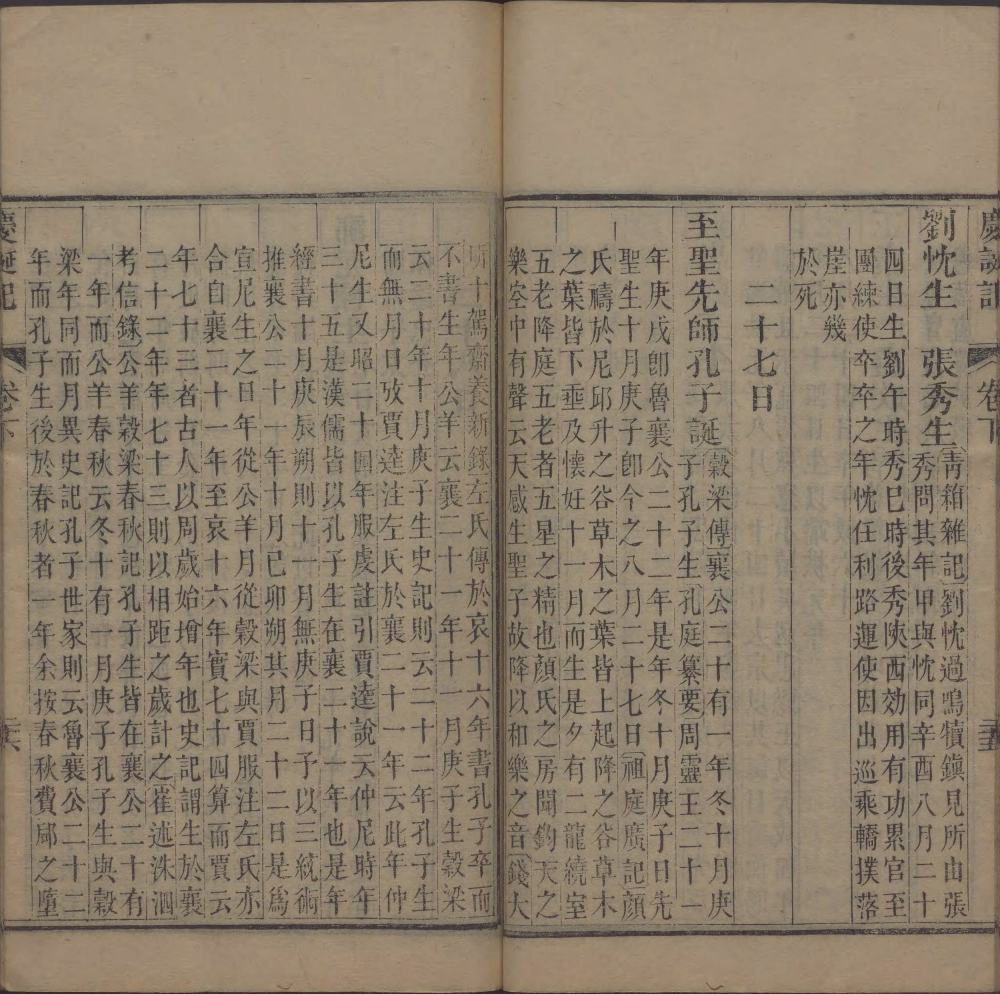 慶誕記
卷下
劉忱生　張秀生 青箱雜記劉忱過鳴犢鎮見所由張
秀問其年甲與忱同辛酉八月二十
四日生劉午時秀巳時後秀陝西効用有功累官至
團練使卒卒之年忱任利路運使因出巡乘轎撲落
崖亦幾
於死
二十七日
至聖先師孔子誕 穀梁傳襄公二十有一年冬十月庚
子孔子生孔庭纂要周靈王二十一
年庚戌卽魯襄公二十二年是年冬十月庚子日先
聖生十月庚子卽今之八月二十七日祖庭廣記顏
氏禱於尼邱升之谷草木之葉皆上起降之谷草木
之葉皆下垂及懷妊十一月而生是夕有二龍繞室
五老降庭五老者五星之精也顏氏之房聞鈞天之
樂空中有聲云天感生聖子故降以和樂之音錢大
昕十駕齋養新錄左氏傳於哀十六年書孔子卒而
不書生年公羊云襄二十一年十一月庚子生穀梁
云二十一年十月庚子生史記則云二十二年孔子生
而無月日攷賈逵注左氏於襄二十一年云此年仲
尼生又昭二十四年服虔註引賈逵說云仲尼時年
三十五是漢儒皆以孔子生在襄二十一年也是年
經書十月庚辰朔則十一月無庚子日予以三統術
推襄公二十一年十月己卯朔其月二十二日是爲
宣尼生之日年從公羊月從穀梁與賈服注左氏亦
合自襄二十一年至哀十六年實七十四算而賈云
年七十三者古人以周歲始增年也史記謂生於襄
二十二年年七十三則以相距之歲計之崔述洙泗
考信錄公羊穀梁春秋記孔子生皆在襄公二十有
一年而公羊春秋云冬十有一月庚子孔子生與穀
梁年同而月異史記孔子世家則云魯襄公二十二
年而孔子生後於春秋者一年余按春秋費郈之墮
慶誕記
卷下